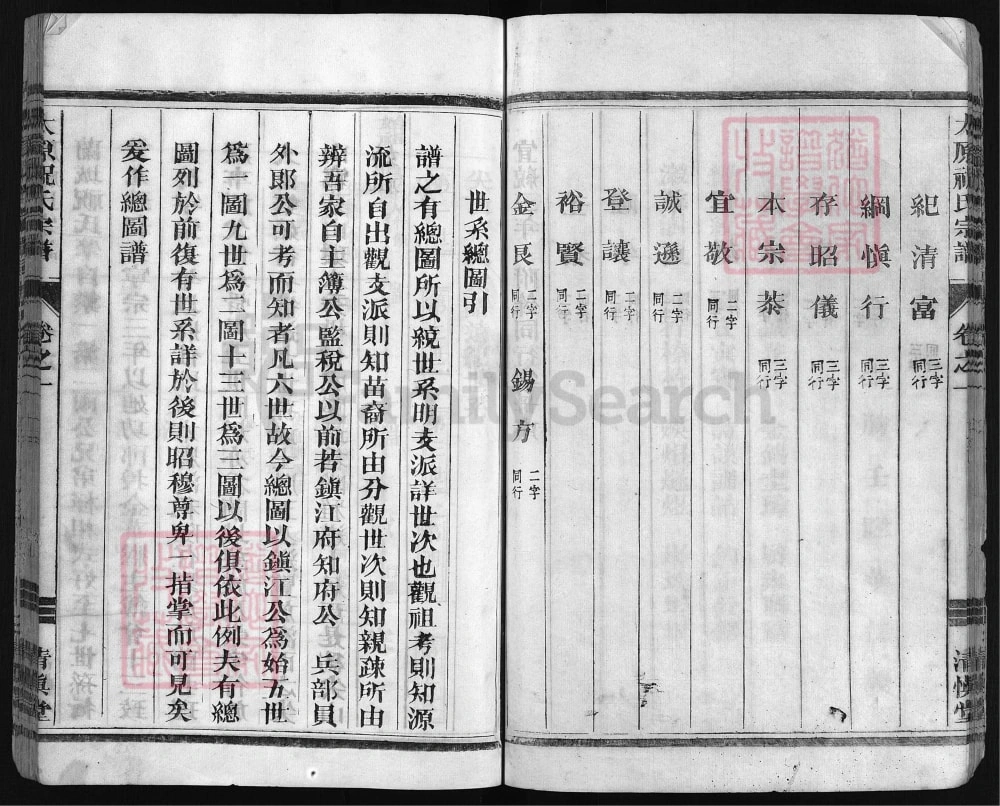 太原祝氏宗譜
卷之一
清慎堂
紀清富 三字同行
綱慎行 三字同行
存昭儀 三字同行
本宗恭 三字同行
宜敬 二字同行
誠遜 二字同行
登讓 二字同行
裕賢 二字同行
金良 二字同行 錫方 二字同行
世系總圖引
譜之有總圖所以統世系明支派詳世次也觀祖考則知源
流所自出觀支派則知苗裔所由分觀世次則知親疎所由
辨吾家自主簿公監稅公以前若鎮江府知府公 兵部員
外郎公可考而知者凡六世故今總圖以鎮江公爲始五世
爲一圖九世爲二圖十三世爲三圖以後俱依此例夫有總
圖列於前復有世系詳於後則昭穆尊卑一指掌而可見矣
爰作總圖譜
太原祝氏宗譜
卷之一
清慎堂
FamilySearch